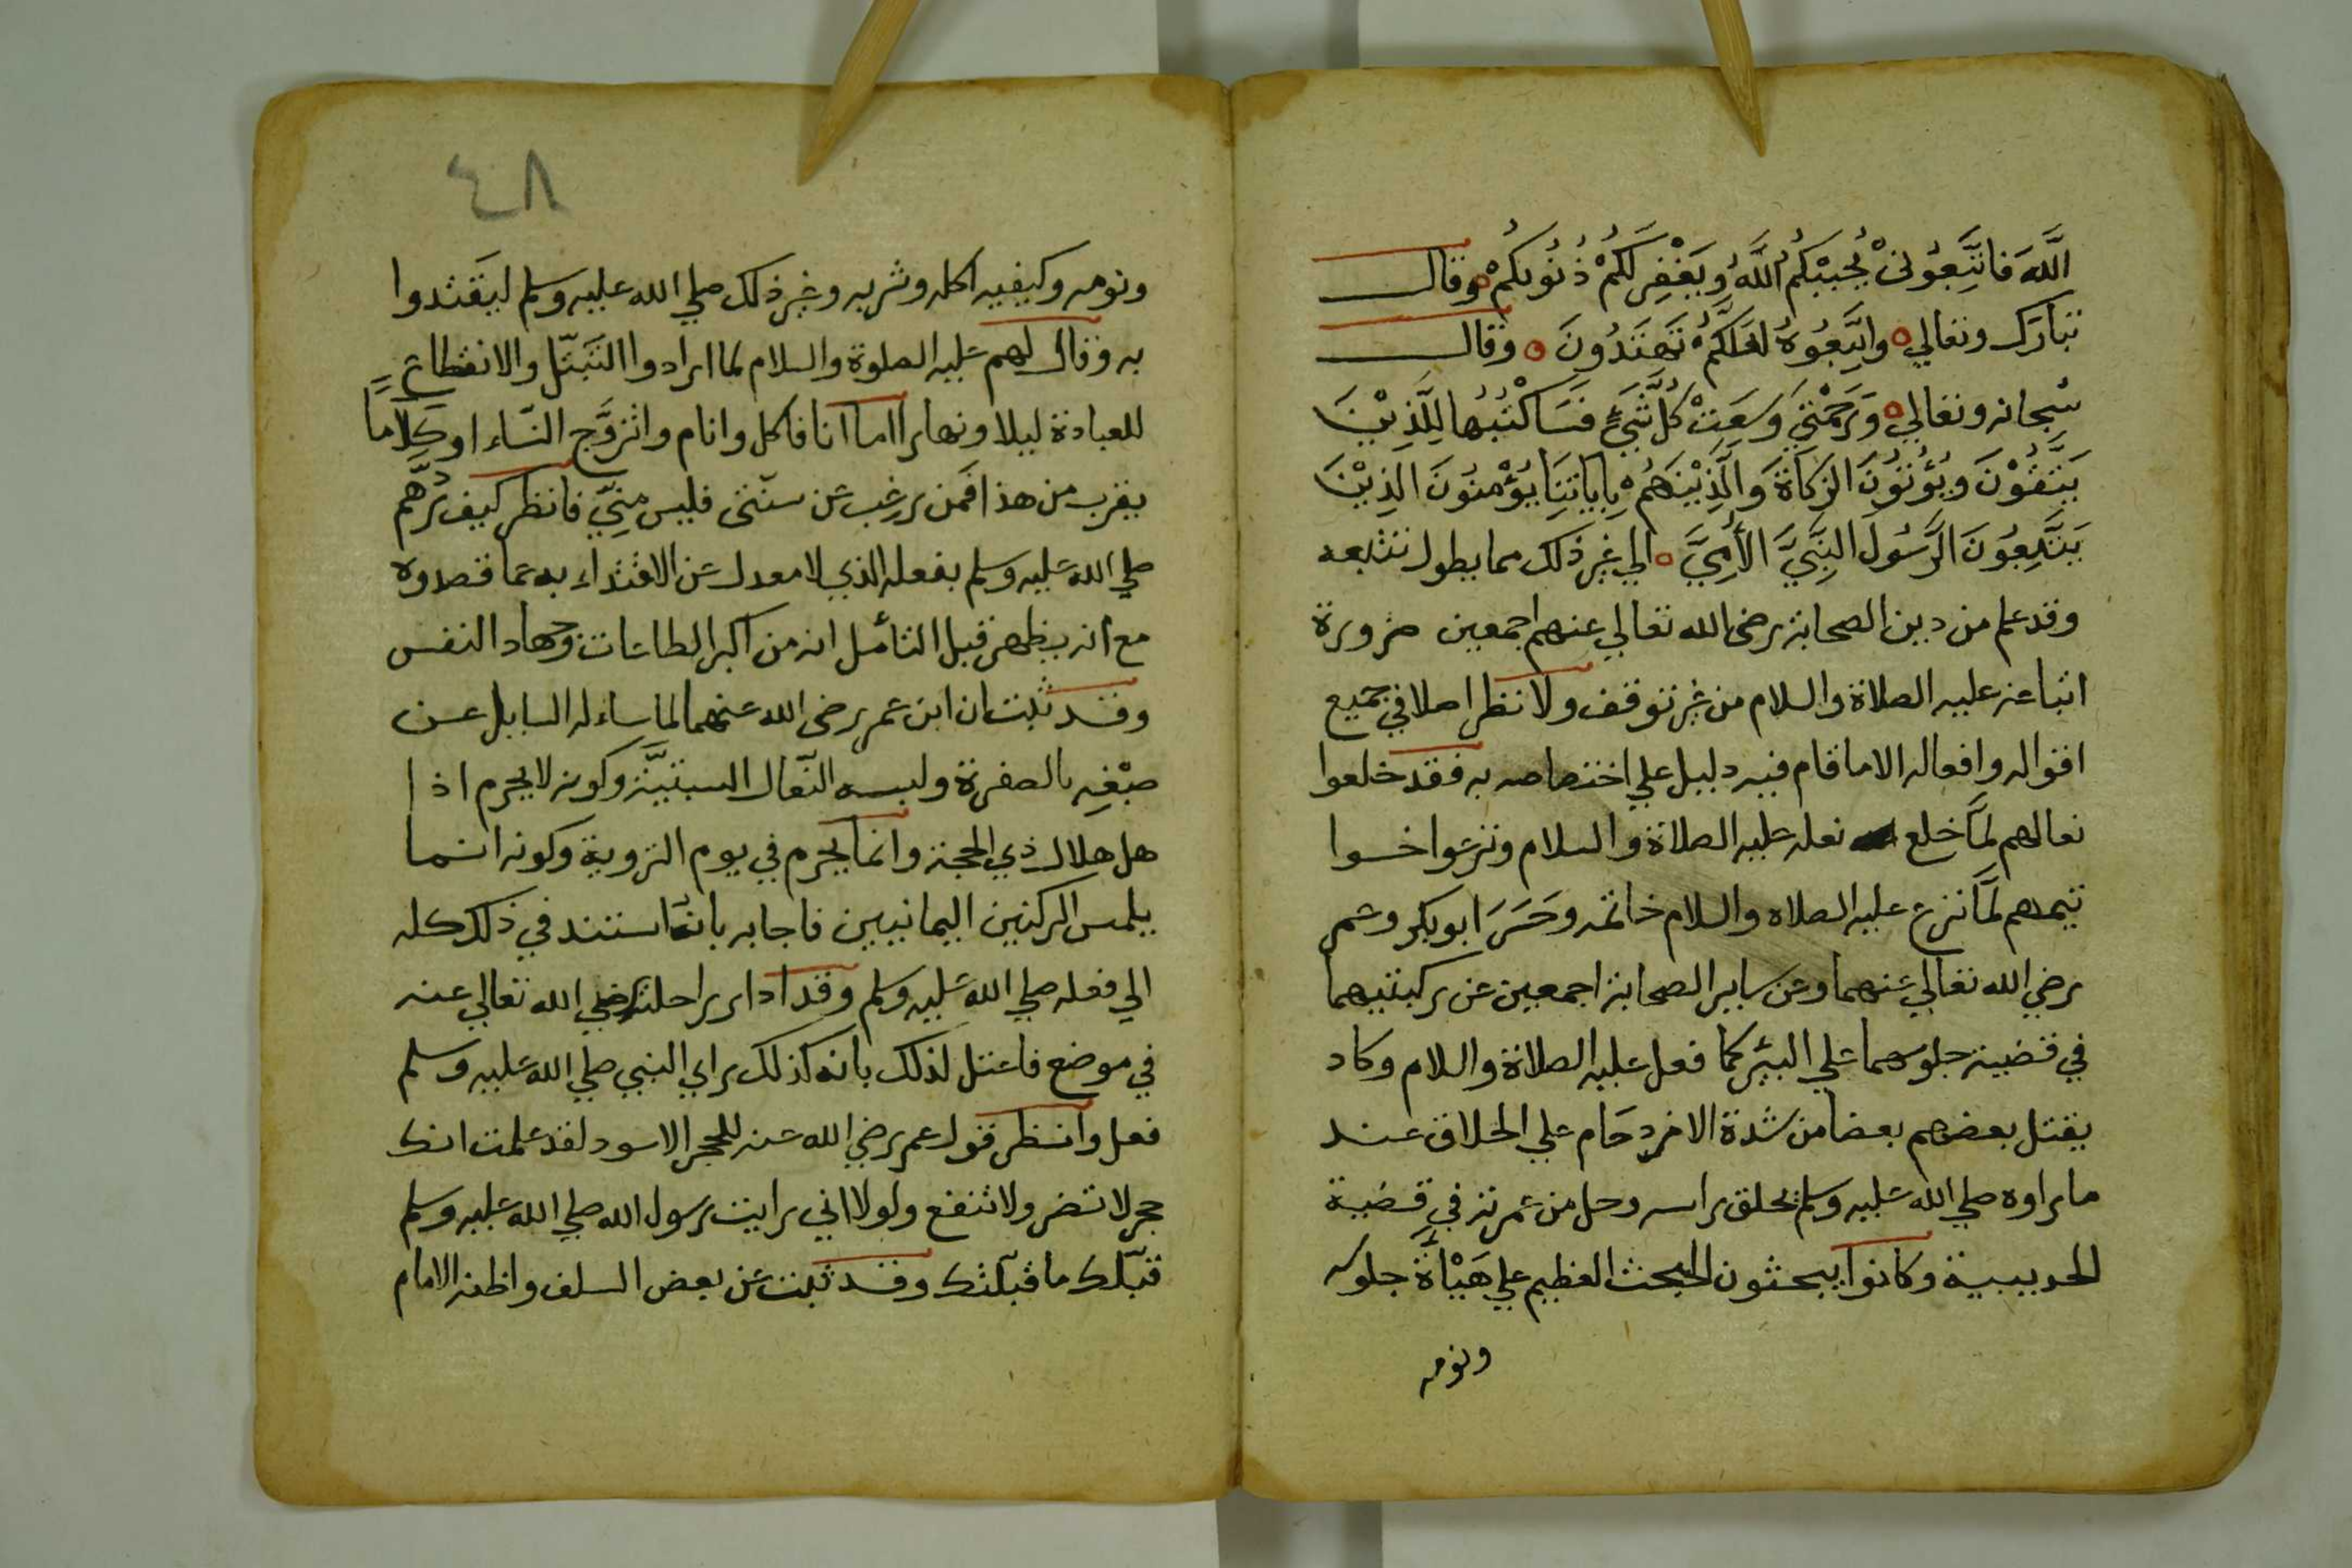 اللَّهَ فَاتَّبِعُونِيْ يُحْبِبْكُمُ اللَّهُ وَيَغْفِرْ لَكُمْ ذُنُوبَكُمْ وقال
تبارك وتعالي وَاتَّبِعُوهُ لَعَلَّكُمْ تَهْتَدُونَ وقال
سبحانه وتعالي وَرَحْمَتِيْ وَسِعَتْ كُلَّ شَيْءٍ فَسَأَكْتُبُهَا لِلَّذِيْنَ
يَتَّقُوْنَ وَيُؤْتُوْنَ الزَّكَاةَ وَالَّذِيْنَ هُمْ بِايَاتِنَا يُؤْمِنُونَ الَّذِيْنَ
يَتَّبِعُونَ الرَّسُولَ النَّبِيَّ الأُمِّيَّ الي غير ذلك مما يطول تتبعه
وقد علم من دين الصحابة رضي الله تعالي عنهم اجمعين ضرورة
اتباعه عليه الصلاة والسلام من غير توقف ولا نظر اصلا في جميع
اقواله وافعاله الا ما قام فيه دليل علي اختصاصه به فقد خلعوا
نعالهم لمَّا خلع نعله عليه الصلاة والسلام ونزعوا خوا
تيمهم لمَّا نزع عليه الصلاه والسلام خاتمه وحَسَرَ ابو بكر وعمر
رضي الله تعالي عنهما وعن ساير الصحابة اجمعين عن ركبتيهما
في قضية جلوسهما علي البئر كما فعل عليه الصلاة والسلام وكاد
يقتل بعضهم بعضا من شدة الازدحام علي الحلاق عند
ما راوه صلي الله عليه وسلم يحلق راسه وحل من عمرته في قضية
الحديبية وكانوا يبحثون البحث العظيم علي هَيْأَة جلوسه
ونومه
٤٨
ونومه وكيفيه اكله وشربه وغير ذلك صلي الله عليه وسلم ليقتدوا
به وقال لهم عليه الصلوة والسلام لما ارادوا التبتّل والانقطاع
للعبادة ليلا ونهارا اما انا فاكل وانام واتزوَّج النّساء او كلامًا
يقرب من هذا فمن رغب عن سنّتى فليس مِنِّي فانظر كيف رَدَّهم
صلي الله عليه وسلم بفعله الذي لا معدل عن الاقتداء به عما قصدوه
مع انه يظهر قبل التأمل انه من اكبر الطاعات وجهاد النفس
وقد ثبت ان ابن عمر رضي الله عنهما لما ساءله السايل عن
صبْغِه بالصفرة ولبسه النّعال السبتيَّة وكونه لا يحرم اذا
هل هلال ذي الحجة وانما يحرم في يوم التروية وكونه انما
يلمس الركنين اليمانيين فاجابه بانه استند في ذلك كله
الي فعله صلي الله عليه وسلم وقد ادار راحلته رضي الله تعالي عنه
في موضع فاعتل لذلك بانه كذلك راي النبي صلي الله عليه وسلم
فعل وانظر قول عمر رضي الله عنه للحجر الاسود لقد علمت انك
حجر لا تضر ولا تنفع ولولا اني رايت رسول الله صلي الله عليه وسلم
قبّلك ما قبّلتك وقد ثبت عن بعض السلف واظنه الامام